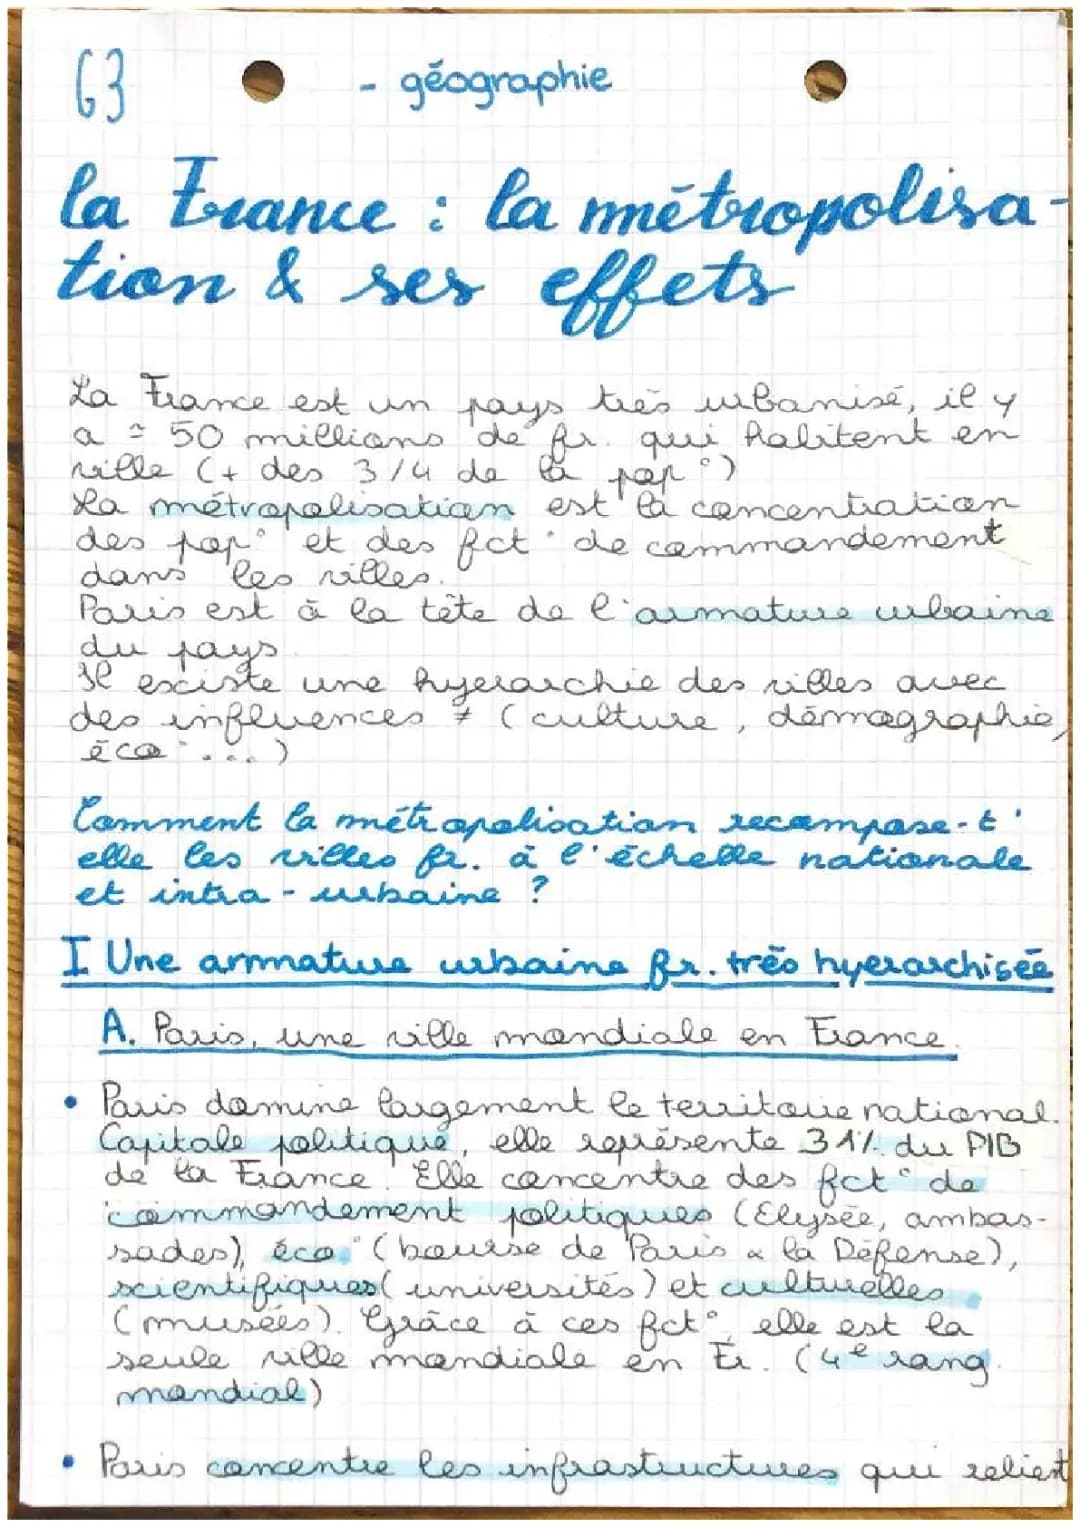 G3 - géographie
la France : la métropolisa-
tion & ses effets
La France est un pays très urbanisé, il y
a ≃ 50 millions de fr. qui habitent en
ville (+ des 3/4 de la pop°)
La métropolisation est la concentration
des pop° et des fct° de commandement
dans les villes.
Paris est à la tête de l'armature urbaine
du pays.
Il existe une hyerarchie des villes avec
des influences ≠ (culture, démographie,
éco°...)
Comment la métropolisation recompose-t'
elle les villes fr. à l'échelle nationale
et intra-urbaine ?
I Une armature urbaine fr. très hyerarchisée
A. Paris, une ville mondiale en France.
• Paris domine largement le territoire national.
Capitale politique, elle représente 31% du PIB
de la France. Elle concentre des fct° de
commandement politiques (Elysée, ambas-
sades), éco° (bourse de Paris & la Défense),
scientifiques (universités) et culturelles
(musées). Grâce à ces fct°, elle est la
seule ville mondiale en Fr. (4e rang
mondial)
• Paris concentre les infrastructures qui relient